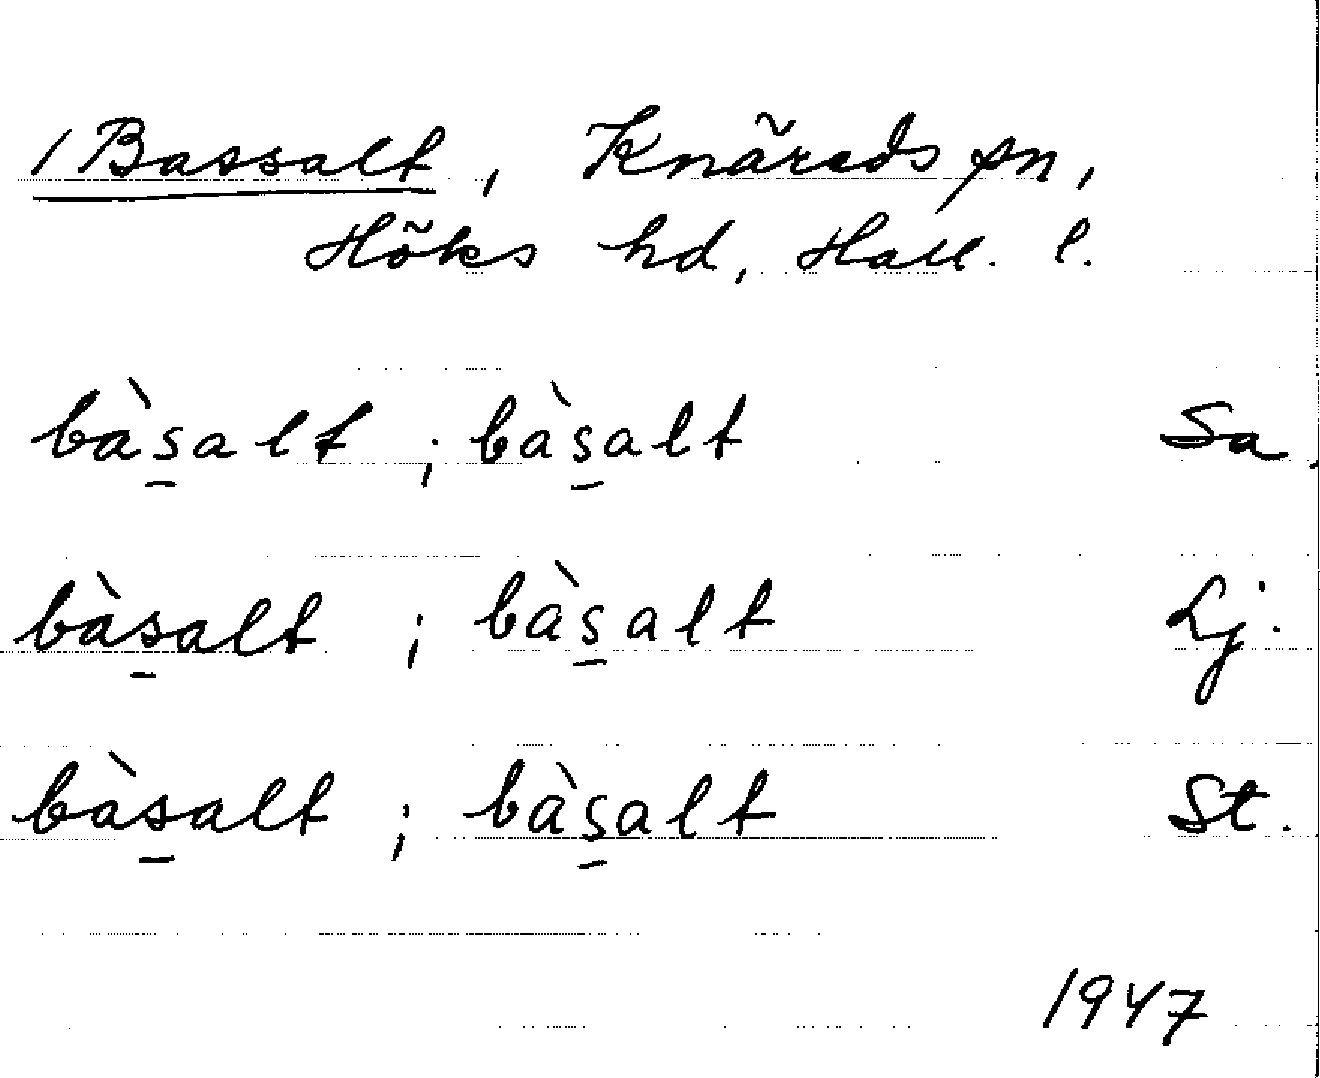 / Bassalt, Knäreds sn,
Höks hd, Hall. l.
bàs̠alt ; bàs̠alt Sa.
bàs̠alt ; bàs̠alt Lj.
bàs̠alt ; bàs̠alt St.
1947